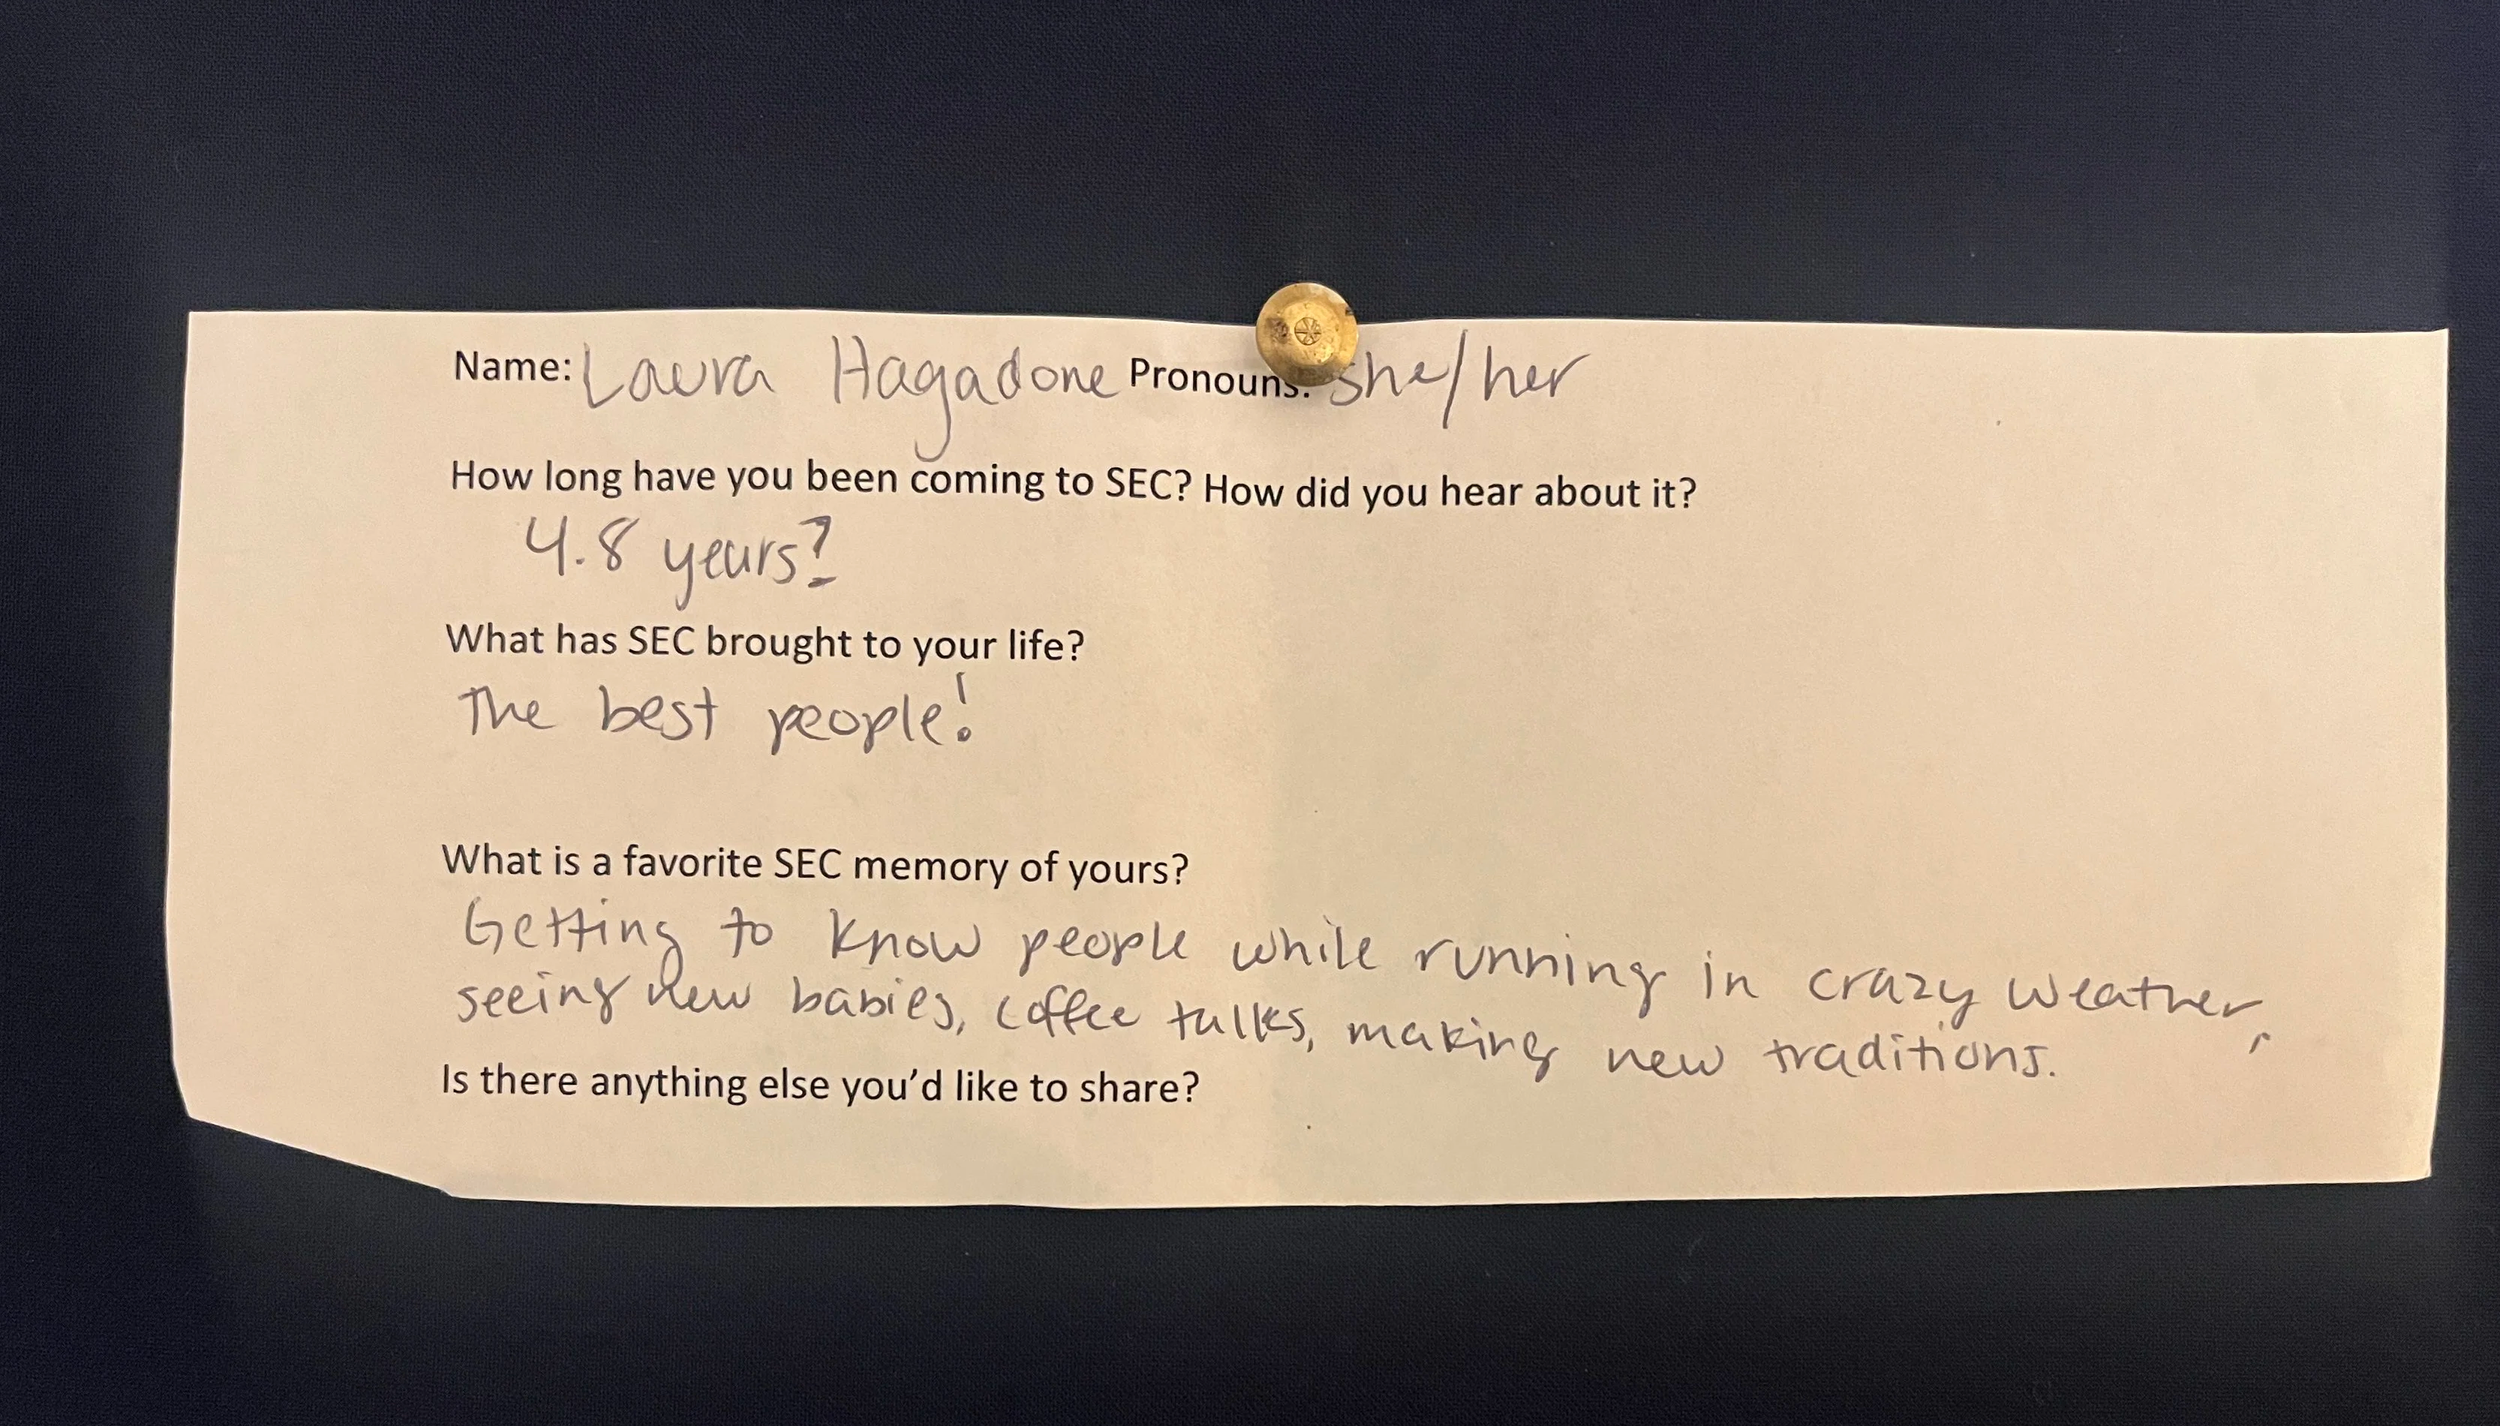 Name: Laura Hagadone Pronouns: she/her
How long have you been coming to SEC? How did you hear about it?
4.8 years?
What has SEC brought to your life?
The best people!
What is a favorite SEC memory of yours?
Getting to know people while running in crazy weather,
seeing new babies, coffee talks, making new traditions.
Is there anything else you'd like to share?